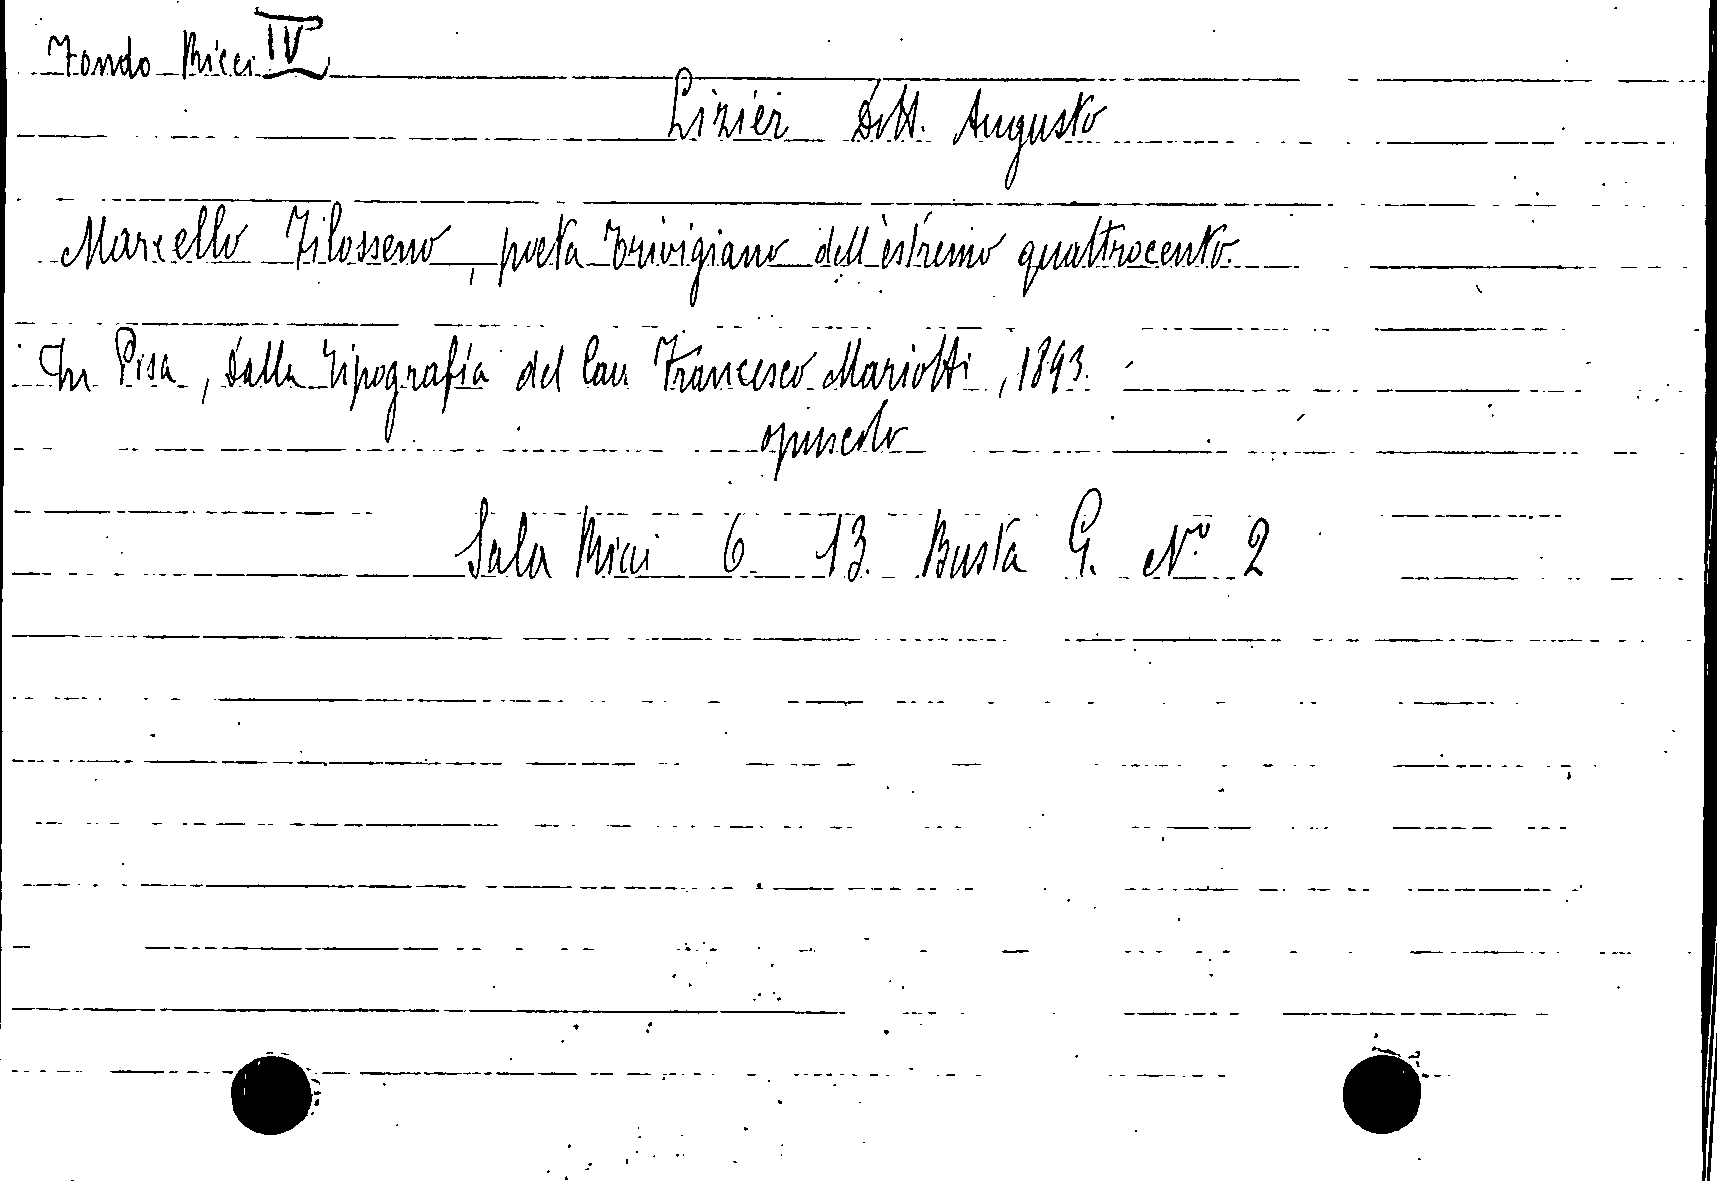 Fondo Ricci IV
Lizier Dott. Augusto
Marcello Filosseno, poeta trivigiano dell'estremo quattrocento.
In Pisa, dalla tipografia del Cav. Francesco Mariotti, 1893.
opuscolo
Sala Ricci 6. 13. Busta G. N.° 2